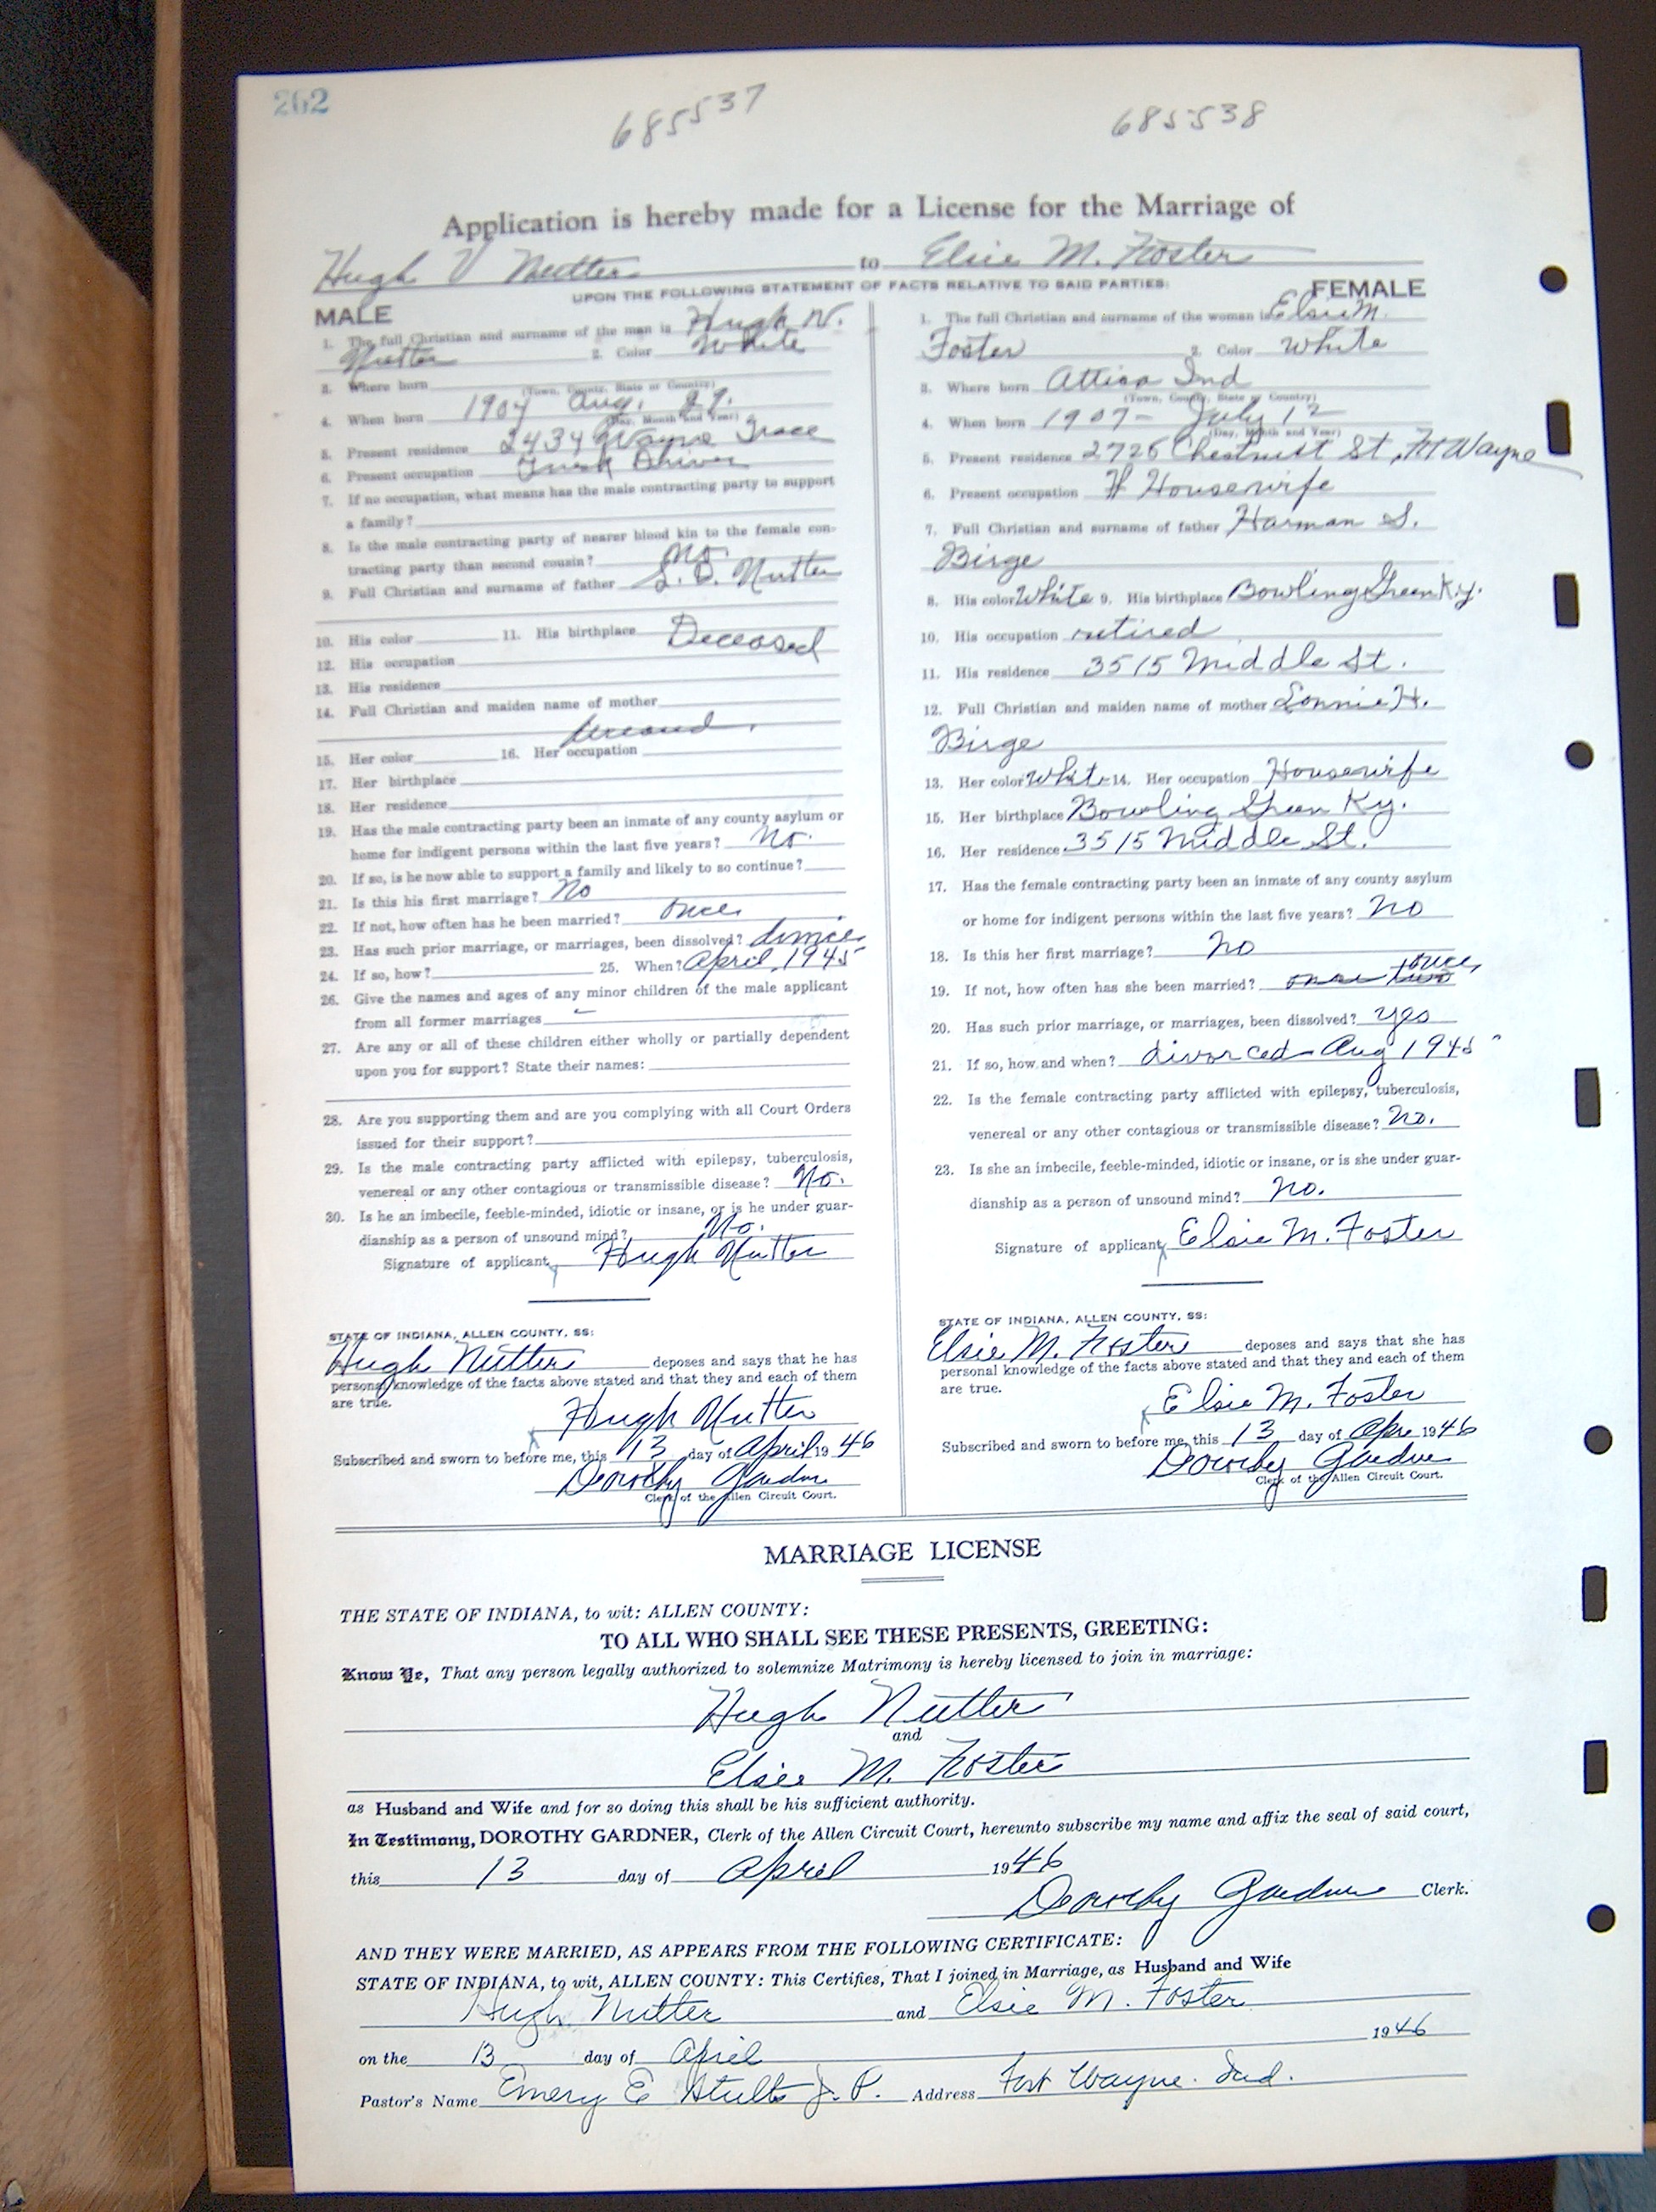 262
685537
685538
Application is hereby made for a License for the Marriage of
Hugh V Nutter to Elsie M. Foster
UPON THE FOLLOWING STATEMENT OF FACTS RELATIVE TO SAID PARTIES:
MALE
1. The full Christian and surname of the man is Hugh W.
Nutter 2. Color White
3. Where born
(Town, County, State or Country)
4. When born 1904 Aug. 29.
(Day, Month and Year)
5. Present residence 2434 Wayne Trace
6. Present occupation Truck Driver
7. If no occupation, what means has the male contracting party to support
a family?
8. Is the male contracting party of nearer blood kin to the female con-
tracting party than second cousin? No
9. Full Christian and surname of father Nutter
10. His color 11. His birthplace Deceased
12. His occupation
13. His residence
14. Full Christian and maiden name of mother
15. Her color 16. Her occupation
17. Her birthplace
18. Her residence
19. Has the male contracting party been an inmate of any county asylum or
home for indigent persons within the last five years? No.
20. If so, is he now able to support a family and likely to so continue?
21. Is this his first marriage? No
22. If not, how often has he been married? once
23. Has such prior marriage, or marriages, been dissolved?
24. If so, how? 25. When? April, 1945
26. Give the names and ages of any minor children of the male applicant
from all former marriages
27. Are any or all of these children either wholly or partially dependent
upon you for support? State their names:
28. Are you supporting them and are you complying with all Court Orders
issued for their support?
29. Is the male contracting party afflicted with epilepsy, tuberculosis,
venereal or any other contagious or transmissible disease? No.
30. Is he an imbecile, feeble-minded, idiotic or insane, or is he under guar-
dianship as a person of unsound mind? No.
Signature of applicant Hugh Nutter
STATE OF INDIANA, ALLEN COUNTY, SS:
Hugh Nutter deposes and says that he has
personal knowledge of the facts above stated and that they and each of them
are true.
Hugh Nutter
Subscribed and sworn to before me, this 13 day of April 1946
Dorothy Gardner
Clerk of the Allen Circuit Court.
FEMALE
1. The full Christian and surname of the woman is Elsie M.
Foster 2. Color White
3. Where born Attica Ind
(Town, County, State or Country)
4. When born 1907- July 12
(Day, Month and Year)
5. Present residence 2726 Chestnut St, Ft Wayne
6. Present occupation H Housewife
7. Full Christian and surname of father Harman S.
Birge
8. His color White 9. His birthplace Bowling Green Ky.
10. His occupation retired
11. His residence 3515 Middle St.
12. Full Christian and maiden name of mother Lonnie H.
Birge
13. Her color White 14. Her occupation Housewife
15. Her birthplace Bowling Green Ky.
16. Her residence 3515 Middle St.
17. Has the female contracting party been an inmate of any county asylum
or home for indigent persons within the last five years? No
18. Is this her first marriage? No
19. If not, how often has she been married? once two once
20. Has such prior marriage, or marriages, been dissolved? yes
21. If so, how and when? divorced - Aug 1945
22. Is the female contracting party afflicted with epilepsy, tuberculosis,
venereal or any other contagious or transmissible disease? No.
23. Is she an imbecile, feeble-minded, idiotic or insane, or is she under guar-
dianship as a person of unsound mind? No.
Signature of applicant Elsie M. Foster
STATE OF INDIANA, ALLEN COUNTY, SS:
Elsie M. Foster deposes and says that she has
personal knowledge of the facts above stated and that they and each of them
are true.
Elsie M. Foster
Subscribed and sworn to before me, this 13 day of Apr 1946
Dorothy Gardner
Clerk of the Allen Circuit Court.
MARRIAGE LICENSE
THE STATE OF INDIANA, to wit: ALLEN COUNTY:
TO ALL WHO SHALL SEE THESE PRESENTS, GREETING:
Know Ye, That any person legally authorized to solemnize Matrimony is hereby licensed to join in marriage:
Hugh Nutter
and
Elsie M. Foster
as Husband and Wife and for so doing this shall be his sufficient authority.
In Testimony, DOROTHY GARDNER, Clerk of the Allen Circuit Court, hereunto subscribe my name and affix the seal of said court,
this 13 day of April 1946
Dorothy Gardner Clerk.
AND THEY WERE MARRIED, AS APPEARS FROM THE FOLLOWING CERTIFICATE:
STATE OF INDIANA, to wit, ALLEN COUNTY: This Certifies, That I joined in Marriage, as Husband and Wife
Hugh Nutter and Elsie M. Foster
on the 13 day of April 1946
Pastor's Name Emery E Stults J. P. Address Fort Wayne. Ind.